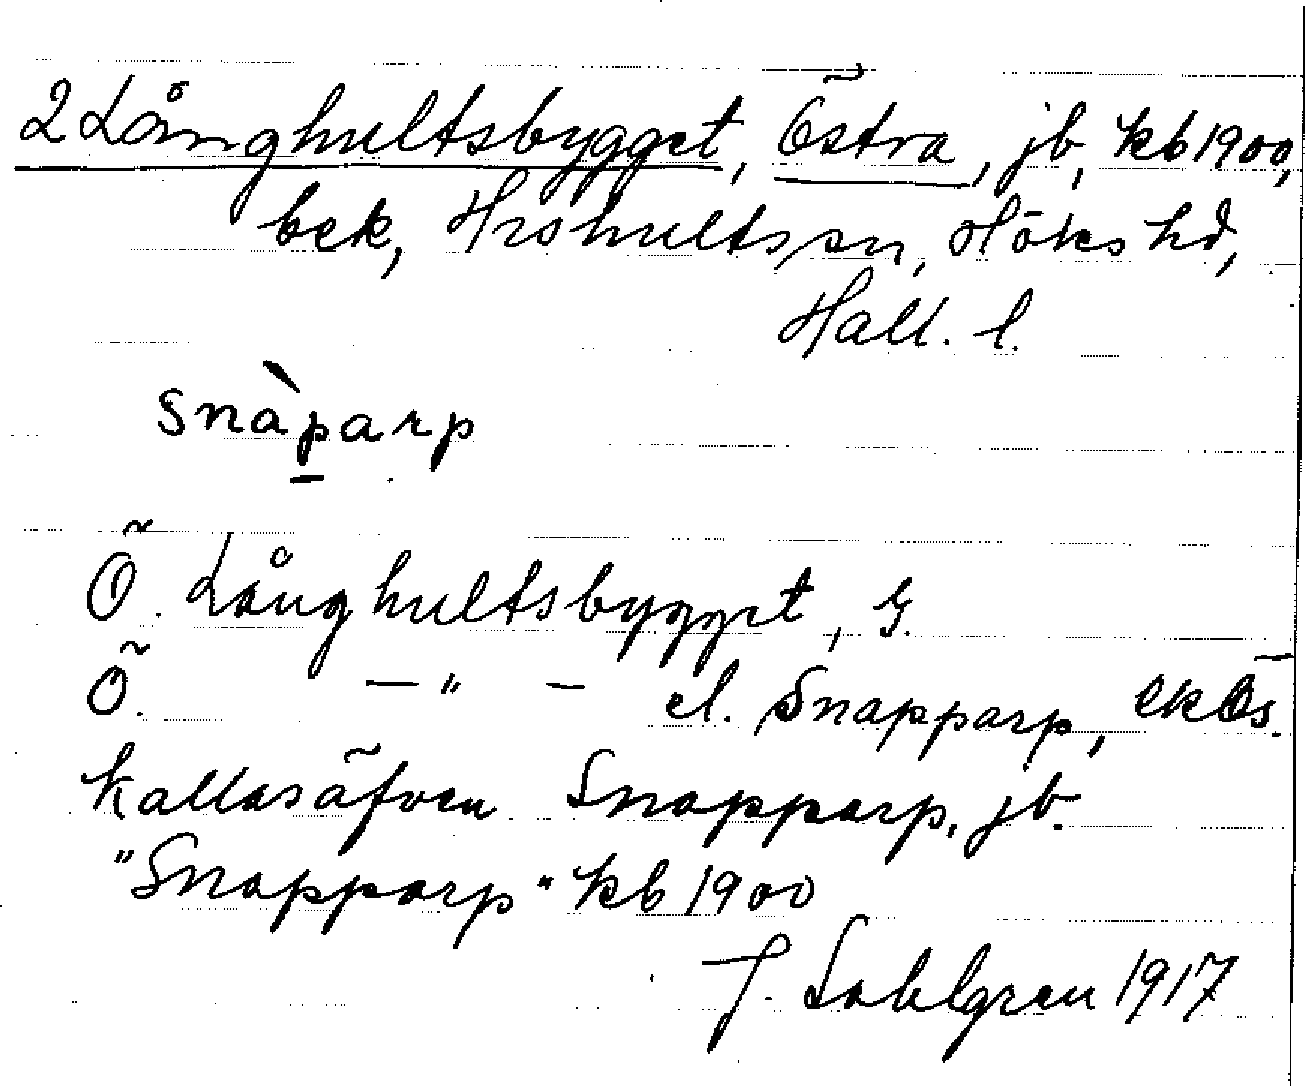 2 Långhultsbygget, Östra, jb, kb 1900,
bek, Hishults sn, Höks hd,
Hall. l.
snàparp
Ö. Långhultsbygget, G.
Ö. — " — el. Snapparp, ekbs.
kallas äfven Snapparp, jb.
"Snapparp" kb 1900
J. Sahlgren 1917